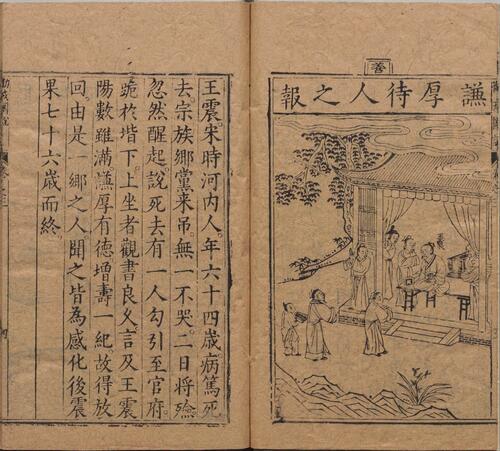 善
謙厚待人之報
王震。宋時河内人。年六十四歲病篤死
去。宗族鄉黨来吊。無一不哭。二日將殮
忽然醒起說死去有一人勾引至官府。
跪於堦下。上坐者觀書良久。言及王震
陽數雖滿。謙厚有德。增壽一紀。故得放
回。由是一鄉之人聞之皆為感化後震
果七十六歲而終。